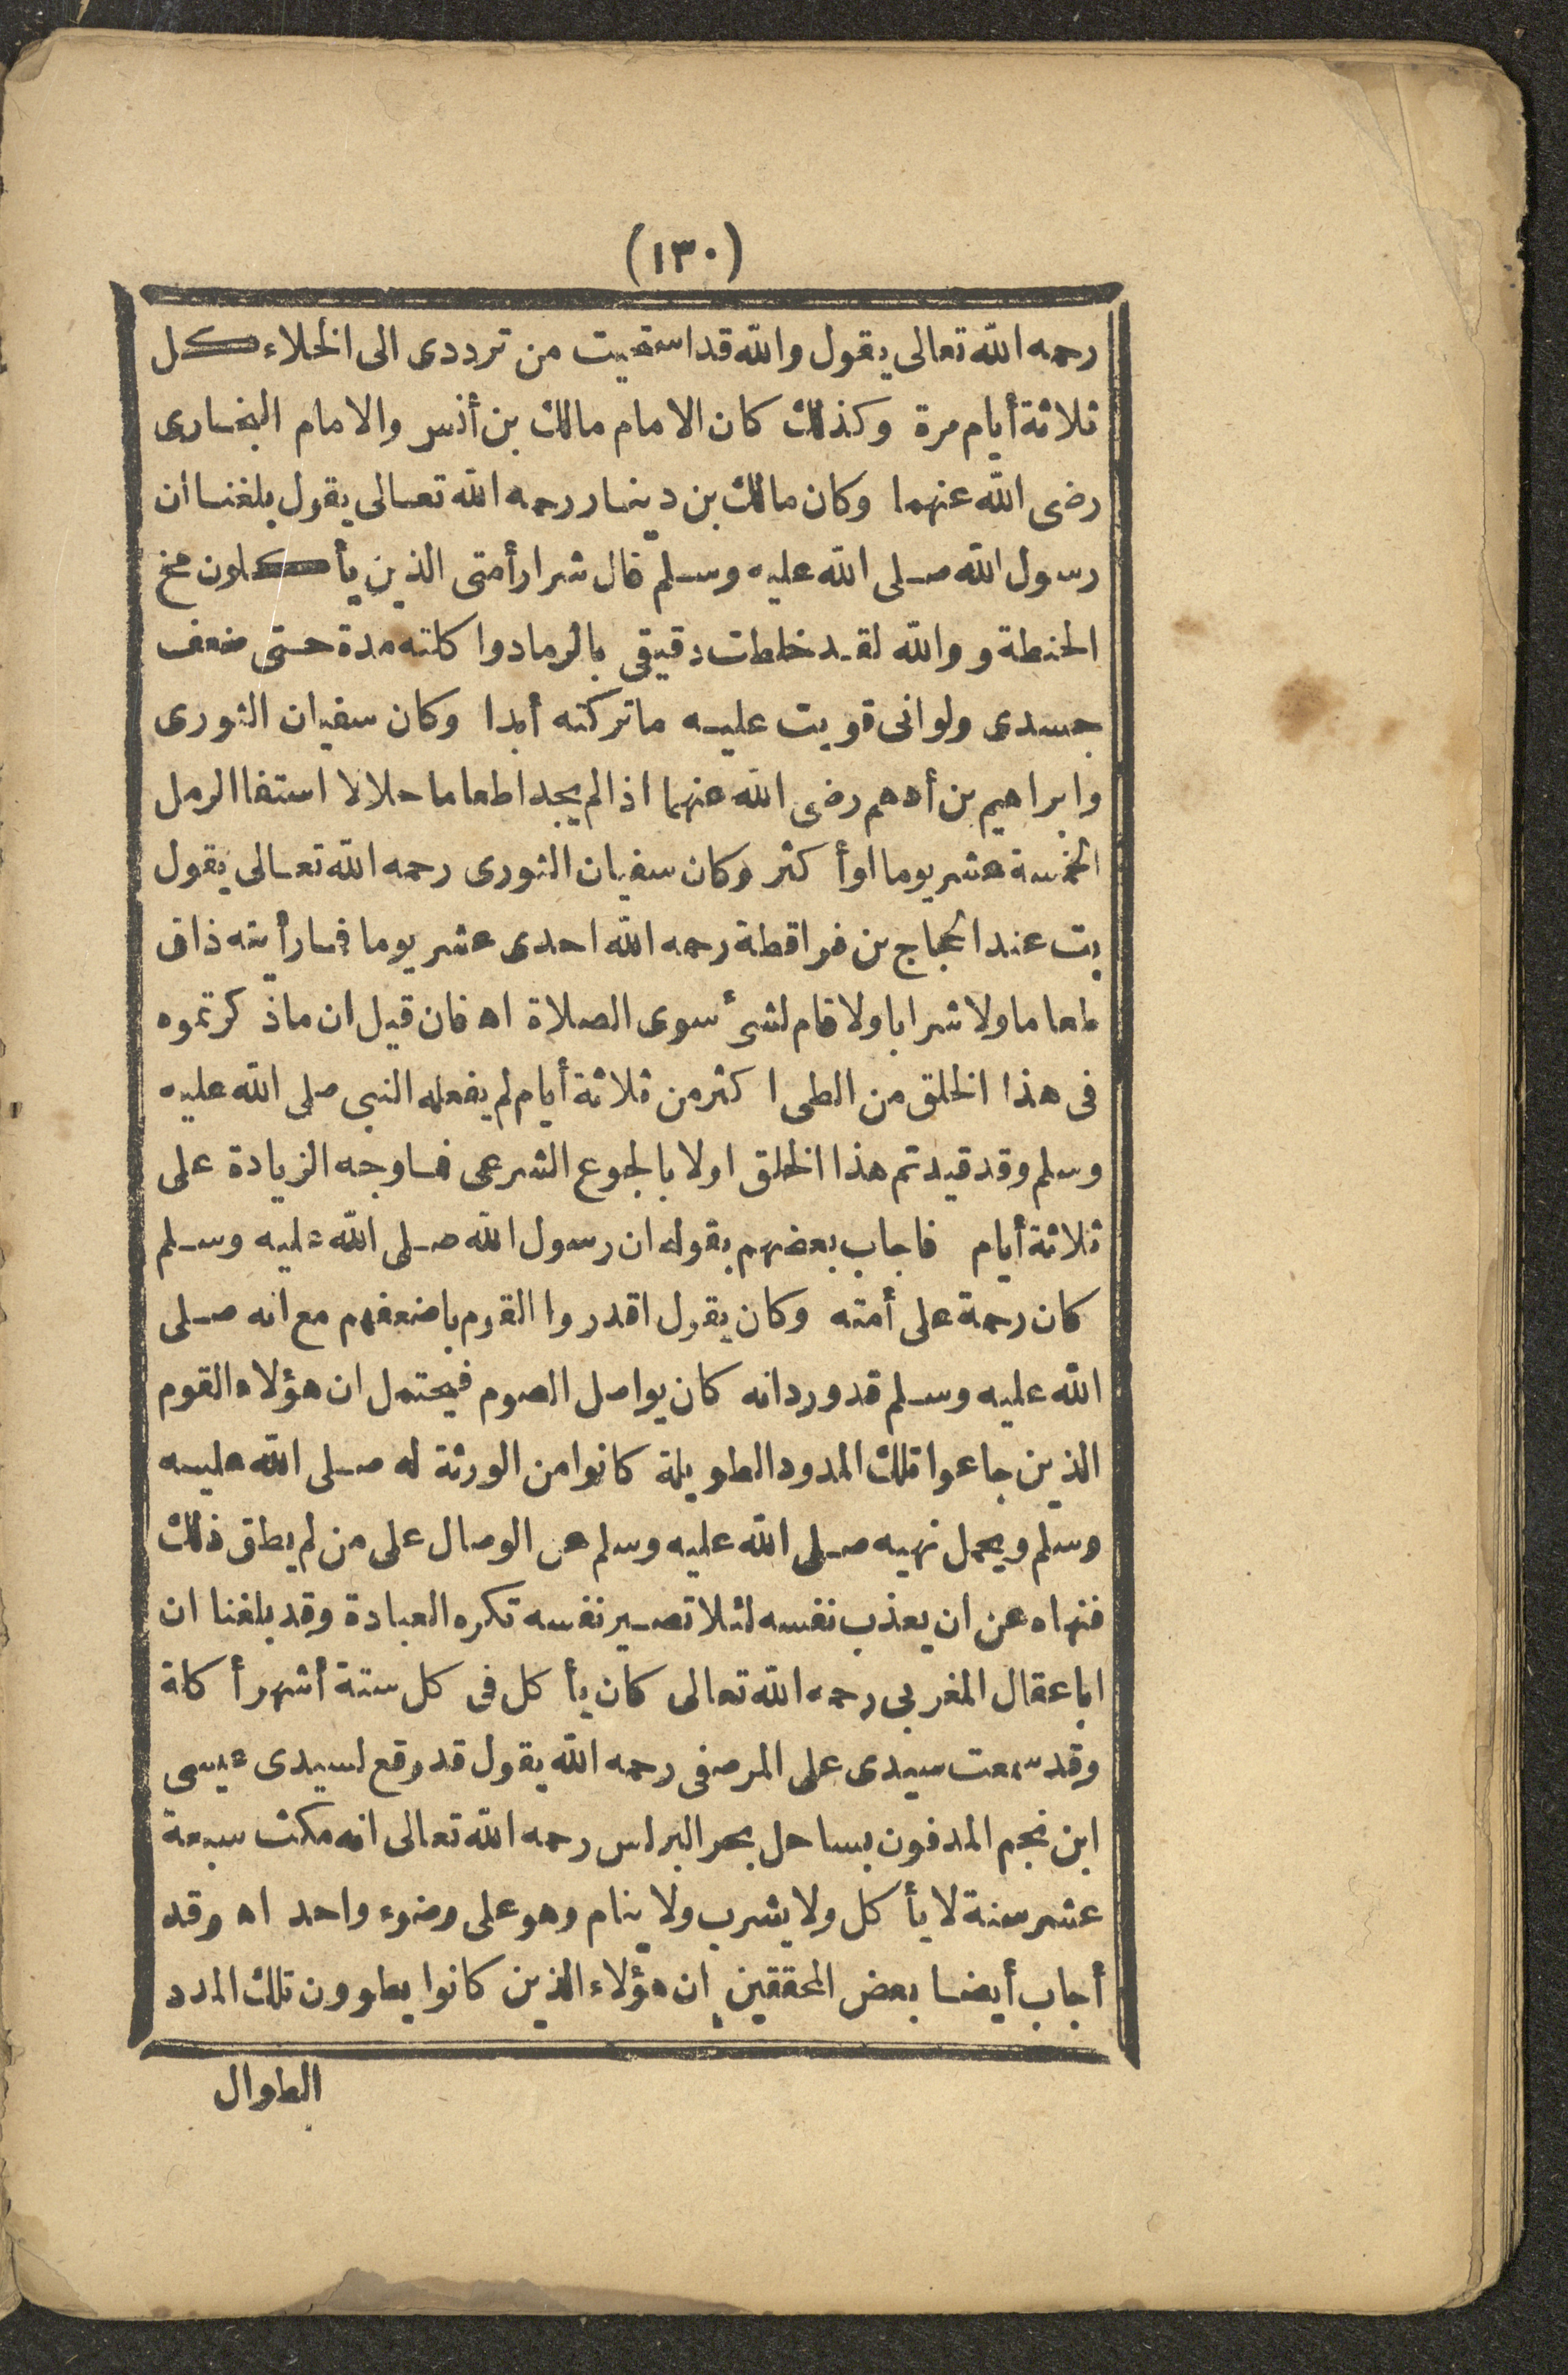 (١٣٠)
رحمه الله تعالى يقول والله قد استحييت من ترددى الى الخلاء كل
ثلاثة أيام مرة وكذلك كان الامام مالك بن أنس والامام البخارى
رضى الله عنهما وكان مالك بن دينار رحمه الله تعالى يقول بلغنا أن
رسول الله صلى الله عليه وسلم قال شرار أمتى الذين يأكلون مخ
الحنطة ووالله لقد خلطت دقيقى بالرماد واكلته مدة حتى ضعف
جسدى ولوانى قويت عليه ماتركته أبدا وكان سفيان الثورى
وابراهيم بن أدهم رضى الله عنهما اذا لم يجدا طعاما حلالا استفا الرمل
الخمسة عشر يوما اوأكثر وكان سفيان الثورى رحمه الله تعالى يقول
بت عند الحجاج بن فراقطة رحمه الله احدى عشر يوما فما رأيته ذاق
طعاما ولا شرابا ولا قام لشئ سوى الصلاة اه فان قيل ان ماذكرتموه
فى هذا الخلق من الطى اكثر من ثلاثة أيام لم يفعله النبى صلى الله عليه
وسلم وقد قيدتم هذا الخلق اولا بالجوع الشرعى فما وجه الزيادة على
ثلاثة أيام فاجاب بعضهم بقوله ان رسول الله صلى الله عليه وسلم
كان رحمة على أمته وكان يقول اقدروا القوم باضعفهم مع انه صلى
الله عليه وسلم قد ورد انه كان يواصل الصوم فيحتمل ان هؤلاء القوم
الذين جاعوا تلك المدود الطويلة كانوا من الورثة له صلى الله عليه
وسلم ويحمل نهيه صلى الله عليه وسلم عن الوصال على من لم يطق ذلك
فنهاه عن ان يعذب نفسه لئلا تصير نفسه تكره العبادة وقد بلغنا ان
اباعقال المغربى رحمه الله تعالى كان يأكل فى كل ستة أشهر أكلة
وقد سمعت سيدى على المرصفى رحمه الله يقول قد وقع لسيدى عيسى
ابن نجم المدفون بساحل بحر البرلس رحمه الله تعالى انه مكث سبعة
عشر سنة لا يأكل ولا يشرب ولا ينام وهو على وضوء واحد اه وقد
أجاب أيضا بعض المحققين ان هؤلاء الذين كانوا يطوون تلك المدد
الطوال